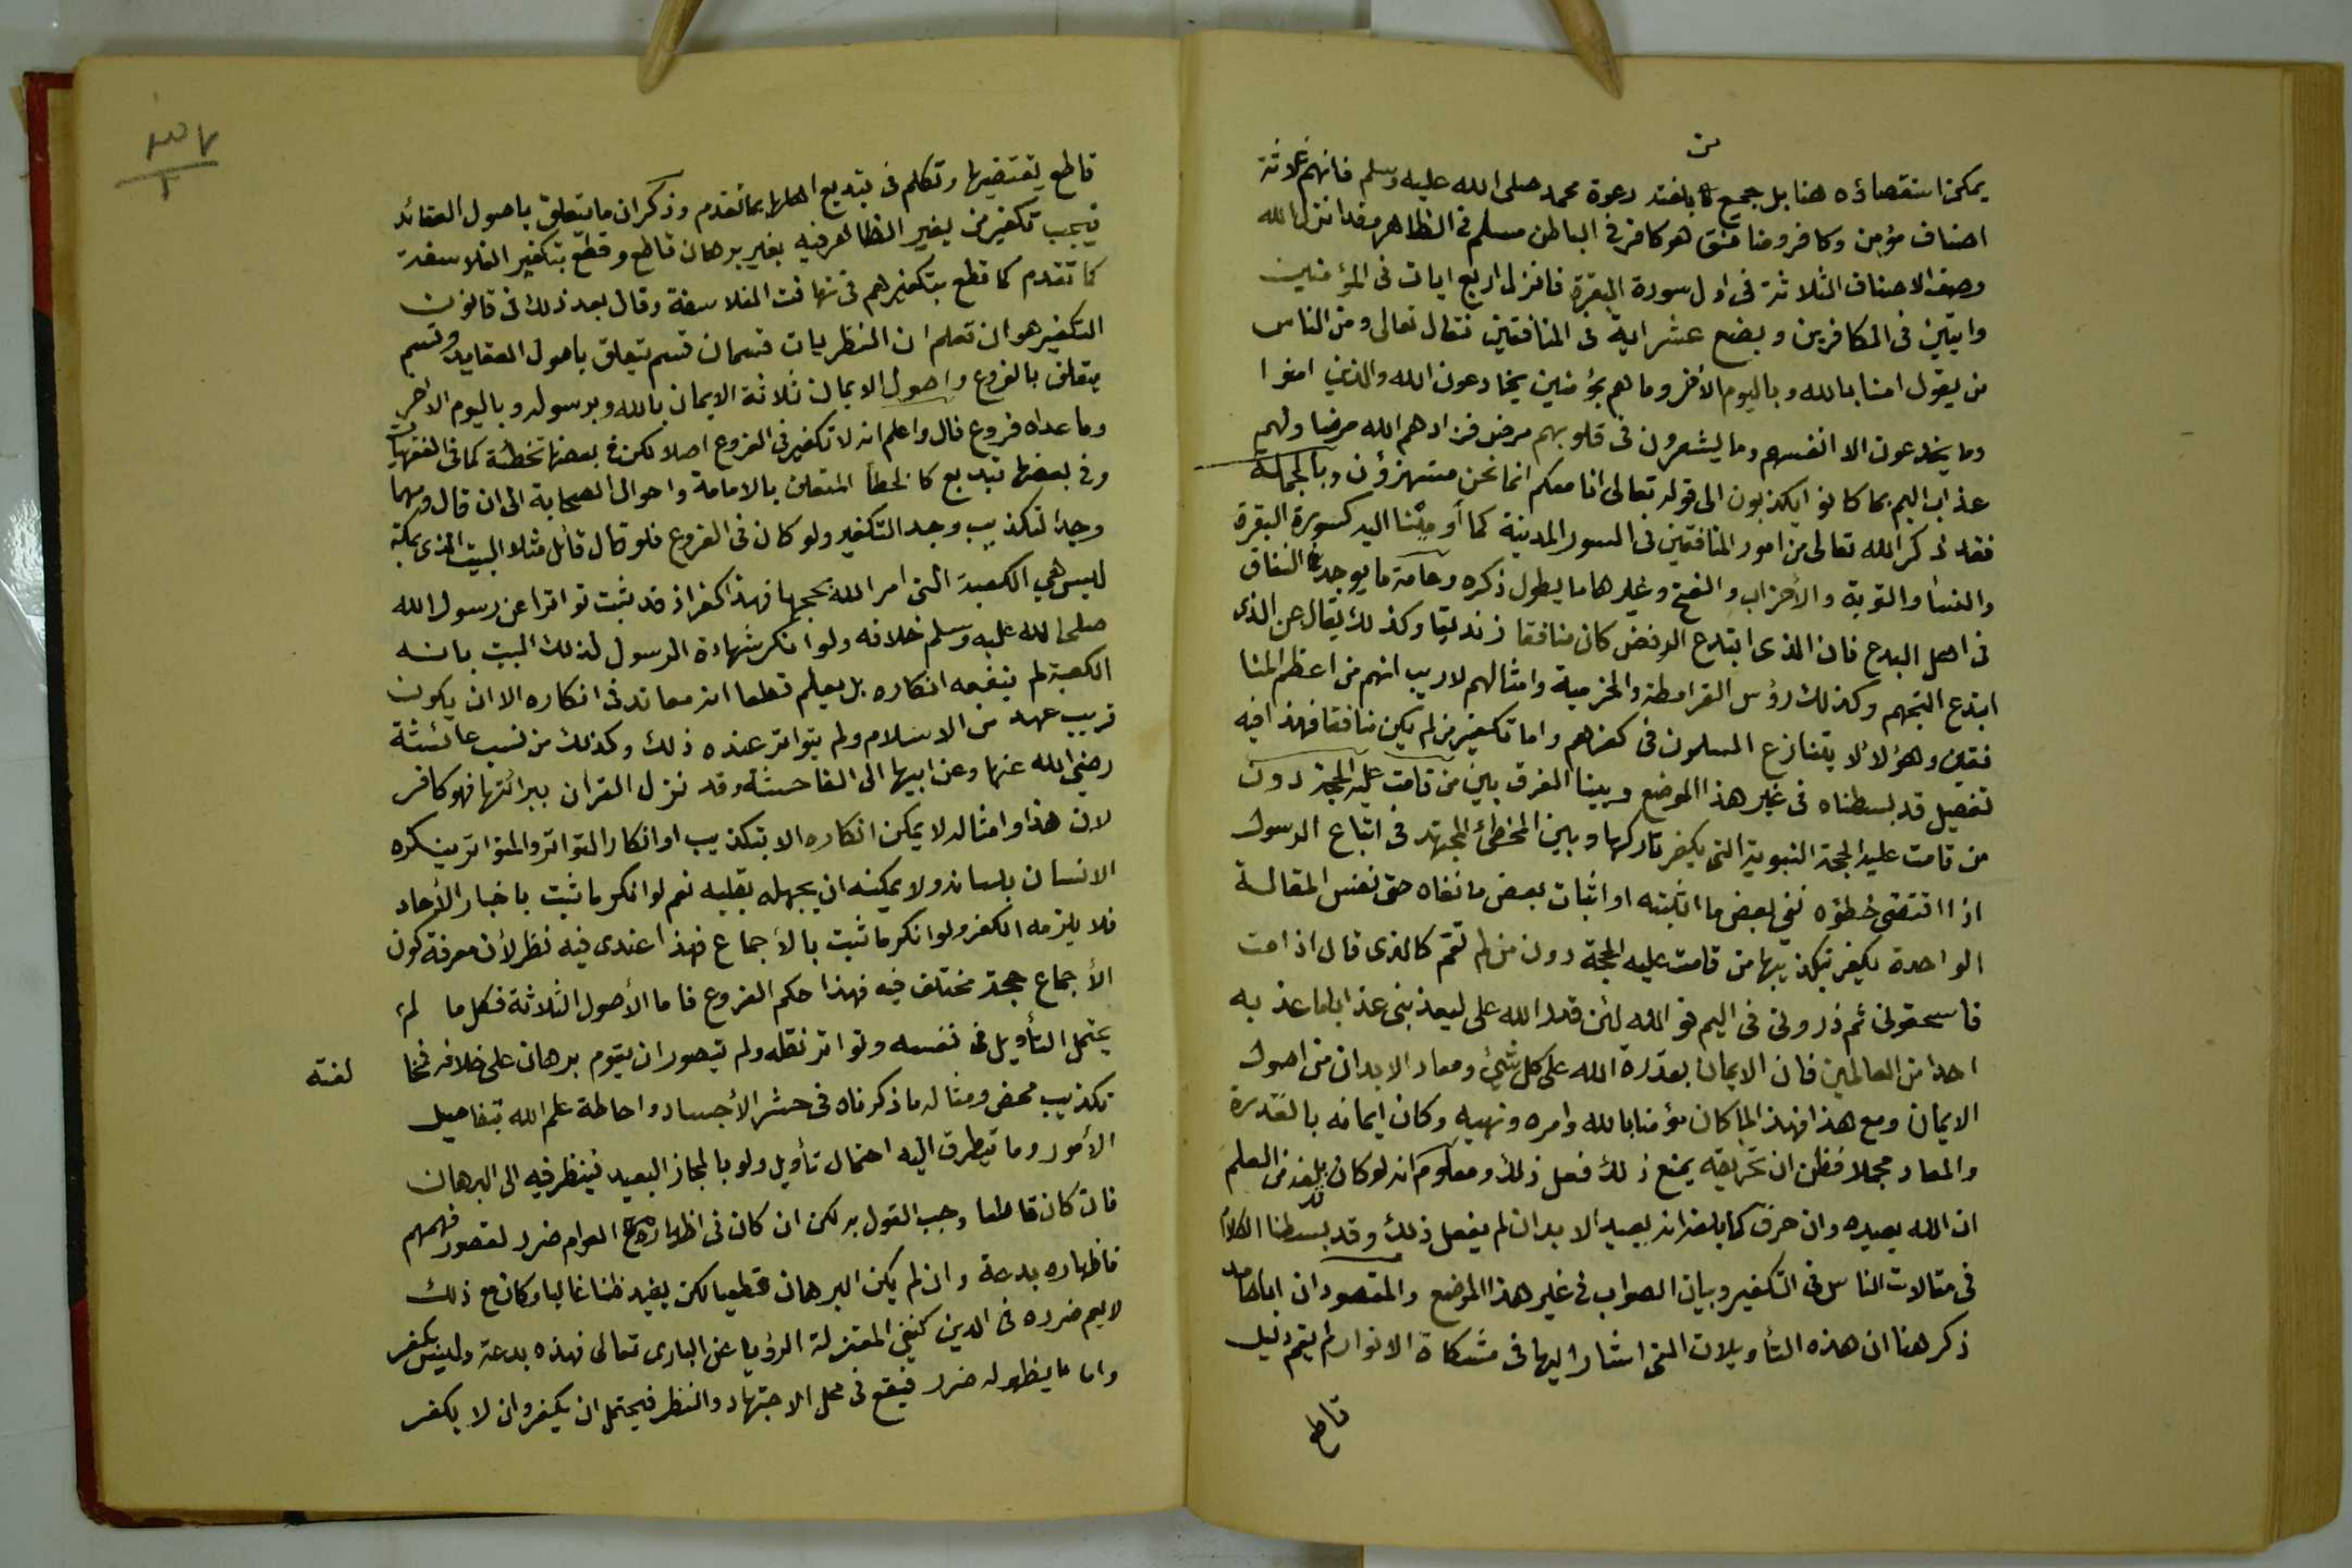 يمكن استقصاؤه هنا بل جميع من بلغته دعوة محمد صلى الله عليه وسلم فانهم ثلاثة
اصناف مؤمن وكافر ومنافق هو كافر في الباطن مسلم في الظاهر وقد انزل الله
وصف الاصناف الثلاثة في اول سورة البقرة فانزل اربع ايات في المؤمنين
وايتين في الكافرين وبضع عشر اية في المنافقين فقال تعالى ومن الناس
من يقول امنا بالله وباليوم الأخر وما هم بمؤمنين يخادعون الله والذين امنوا
وما يخدعون الا انفسهم وما يشعرون في قلوبهم مرض فزادهم الله مرضا ولهم
عذاب اليم بما كانوا يكذبون الى قوله تعالى انا معكم انما نحن مستهزؤن وبالجملة
فقد ذكر الله تعالى من امور المنافقين في السور المدينة كما أومئنا اليه كسورة البقرة
والنسا والتوبة والأحزاب والفتح وغيرها ما يطول ذكره وعامة ما يوجد النفاق
في اهل البدع فان الذى ابتدع الرفض كان منافقا زنديقا وكذلك يقال عن الذى
ابتدع التجهم وكذلك رؤس القرامطة والخرمية وامثالهم لا ريب انهم من اعظم المنا
فقين وهؤلا لا يتنازع المسلمون في كفرهم واما تكفير من لم يكن منافقا فهذا فيه
تفصيل قد بسطناه في غير هذا الموضع وبينا الفرق بين من قامت عليه الحجة دون
من قامت عليه الحجة النبوية التى يكفر تاركها وبين المخطئ المجتهد في اتباع الرسول
اذا اقتضى خطؤه نفى بعض ما اثبته او اثبات بعض ما نفاه حتى نفس المقالة
الواحدة يكفر بتكذيبها من قامت عليه الحجة دون من لم تقم كالذى قال اذا مت
فاسحقوني ثم ذروني في اليم فوالله لئن قدر الله على ليعذبني عذابا ما عذبه
احدا من العالمين فان الايمان بقدرة الله على كل شيئ ومعاد الابدان من اصول
الايمان ومع هذا فهذا لما كان مؤمنا بالله وامره ونهيه وكان ايمانه بالقدرة
والمعاد مجملا فظن ان تحريقه يمنع ذلك فعل ذلك ومعلوم انه لو كان بلغه من العلم
ان الله يعيده وان حرق كما بلغه انه يعيد الابدان لم يفعل ذلك وقد بسطنا الكلام
في مقالات الناس في التكفير وبيان الصواب في غير هذا الموضع والمقصود ان اباحامد
ذكر هنا ان هذه التأويلات التى اشار اليها في مشكاة الانوار لم يقم دليل
قاطع
قاطع يقتضيها وتكلم في تبديع اهلها بما تقدم وذكر ان ما يتعلق باصول العقائد
فيجب تكفير من يغير الظاهر فيه بغير برهان قاطع وقطع بتكفير الفلاسفة
كما تقدم كما قطع بتكفيرهم في تهافت الفلاسفة وقال بعد ذلك في قانون
التكفير هو ان تعلم ان النظريات قسمان قسم يتعلق باصول العقايد وقسم
يتعلق بالفروع واصول الايمان ثلاثة الايمان بالله وبرسوله وباليوم الاخر
وما عداه فروع قال واعلم انه لا تكفير في الفروع اصلا لكن في بعضها تخطئة كما في الفقهيات
وفي بعضها تبديع كالخطأ المتعلق بالامامة واحوال الصحابة الى ان قال ومهما
وجد التكذيب وجد التكفير ولو كان في الفروع فلو قال قائل مثلا البيت الذى بمكة
ليس هي الكعبة التى امر الله بحجها فهذا كفر اذ قد ثبت تواترا عن رسول الله
صلى الله عليه وسلم خلافه ولو انكر شهادة الرسول لذلك البيت بانه
الكعبة لم ينفعه انكاره بل يعلم قطعا انه معاند في انكاره الا ان يكون
قريب عهد من الاسلام ولم يتواتر عنده ذلك وكذلك من نسب عائشة
رضي الله عنها وعن ابيها الى الفاحشة وقد نزل القران ببرائتها فهو كافر
لان هذا وامثاله لا يمكن انكاره الا بتكذيب او انكار التواتر والمتواتر ينكره
الانسان بلسانه ولا يمكنه ان يجهله بقلبه نعم لو انكر ما ثبت باخبار الأحاد
فلا يلزمه الكفر ولو انكر ما ثبت بالأجماع فهذا عندى فيه نظر لأن معرفة كون
الأجماع حجة مختلف فيه فهذا حكم الفروع فاما الأصول الثلاثة فكل ما لم
يحتمل التأويل في نفسه وتواتر نقله ولم يتصور ان يقوم برهان على خلافه فمخا لفته
تكذيب محض ومثاله ما ذكرناه في حشر الأجساد واحاطة علم الله بتفاصيل
الأمور وما يتطرق اليه احتمال تأويل ولو بالمجاز البعيد فينظر فيه الى البرهان
فان كان قاطعا وجب القول به لكن ان كان في اظهاره مع العوام ضرر لقصور فهمهم
فاظهاره بدعة وان لم يكن البرهان قطعيا لكن يفيد ظنا غالبا وكان مع ذلك
لا يعم ضرره في الدين كنفي المعتزلة الرؤيا عن البارى تعالى فهذه بدعة وليس بكفر
واما ما يظهر له ضرر فيقع في محل الاجتهاد والنظر فيحتمل ان يكفر وان لا يكفر